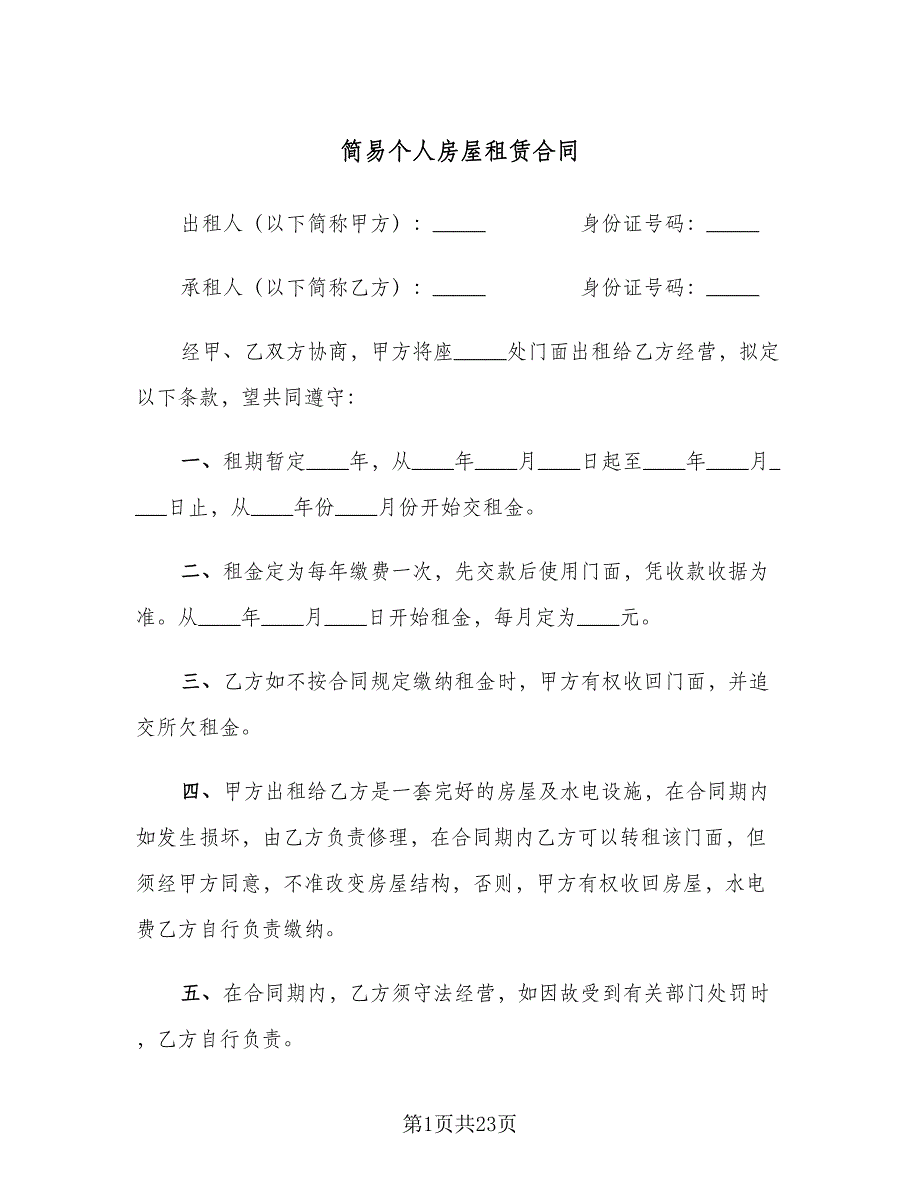 简易个人房屋租赁合同
出租人（以下简称甲方）：_____ 身份证号码：_____
承租人（以下简称乙方）：_____ 身份证号码：_____
经甲、乙双方协商，甲方将座_____处门面出租给乙方经营，拟定
以下条款，望共同遵守：
一、租期暂定____年，从____年____月____日起至____年____月_
___日止，从____年份____月份开始交租金。
二、租金定为每年缴费一次，先交款后使用门面，凭收款收据为
准。从____年____月____日开始租金，每月定为____元。
三、乙方如不按合同规定缴纳租金时，甲方有权收回门面，并追
交所欠租金。
四、甲方出租给乙方是一套完好的房屋及水电设施，在合同期内
如发生损坏，由乙方负责修理，在合同期内乙方可以转租该门面，但
须经甲方同意，不准改变房屋结构，否则，甲方有权收回房屋，水电
费乙方自行负责缴纳。
五、在合同期内，乙方须守法经营，如因故受到有关部门处罚时
，乙方自行负责。
第1页共23页